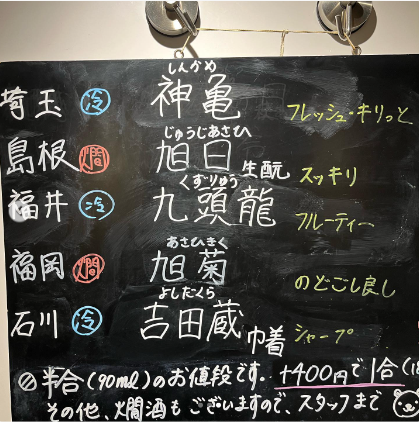 しんかめ
埼玉 冷 神亀 フレッシュ・キリっと
じゅうじあさひ
島根 燗 旭日 生酛 スッキリ
くずりゅう
福井 冷 九頭龍 フルーティー
あさひきく
福岡 燗 旭菊 のどごし良し
よしだくら
石川 冷 吉田蔵 巾着 シャープ
半合(90ml)のお値段です。+400円で1合(18
その他、燗酒もございますので、スタッフまで